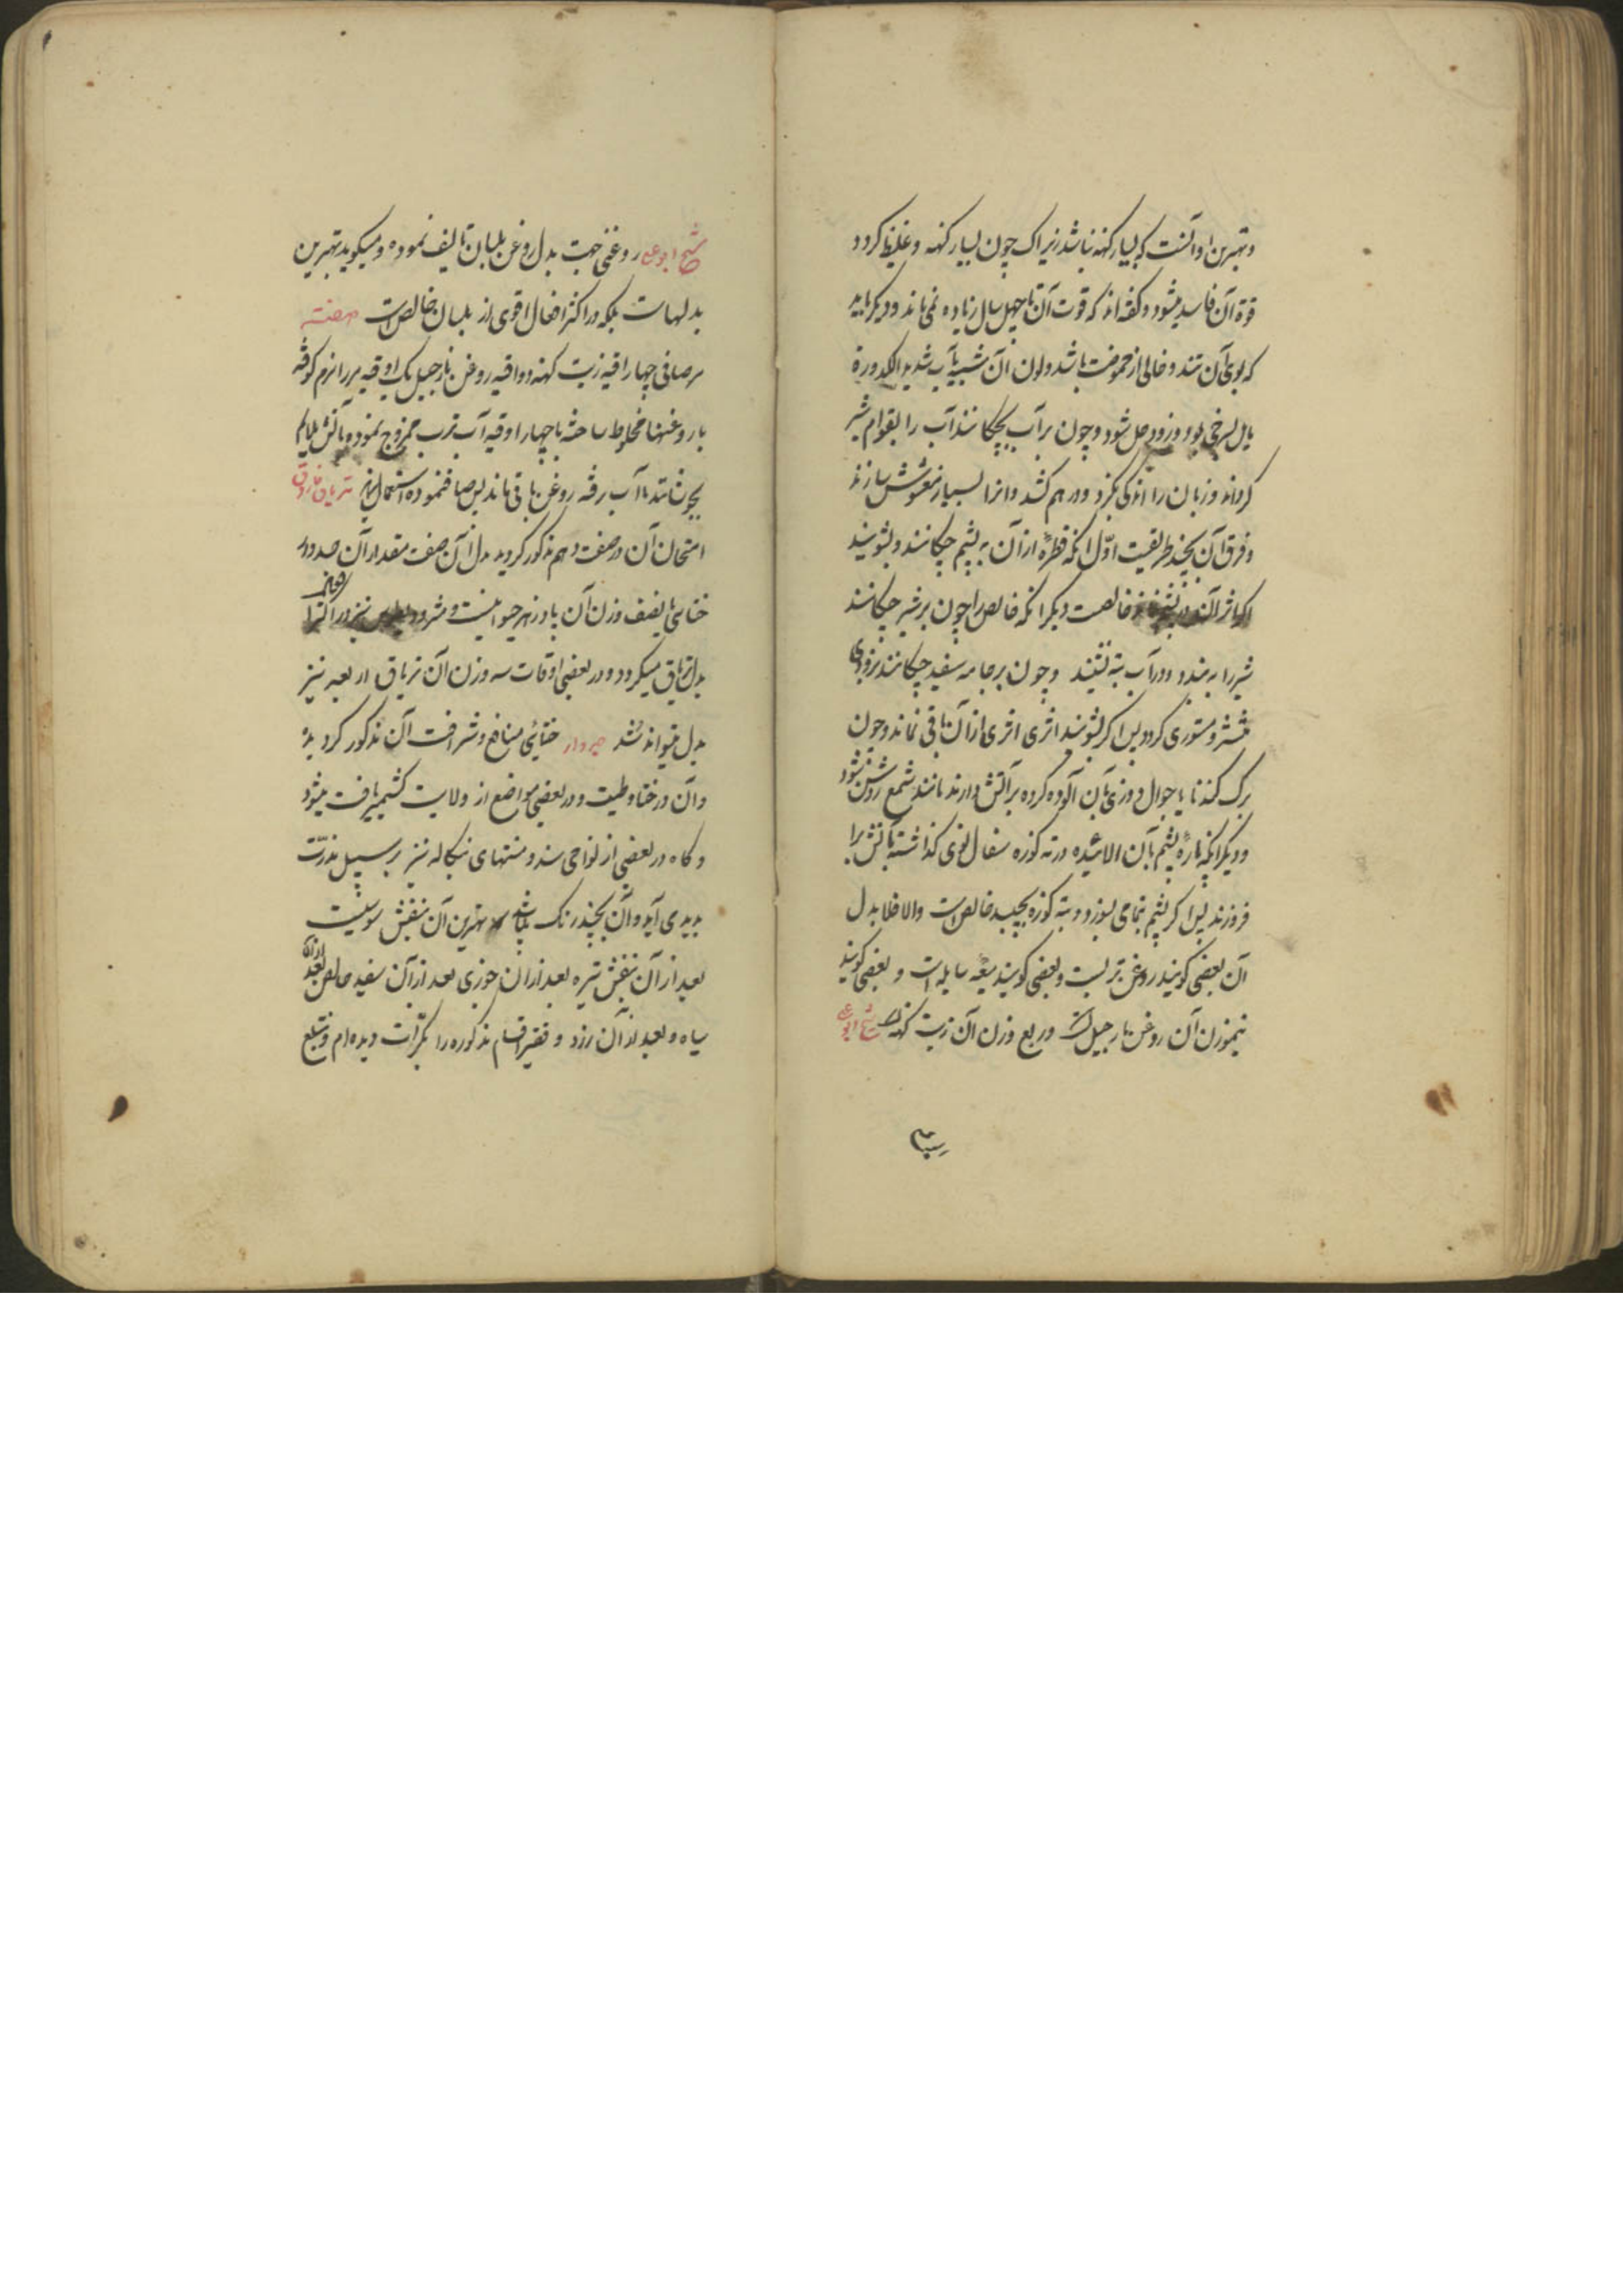 و بهترین او آنست که بسیار کهنه نباشد زیرا که چون بسیار کهنه و غلیظ کردد
قوة آن فاسد میشود و کفته اند که قوت آن تا چهل سال زیاده نمی ماند و دیکر باید
که بوی آن تند و خالی از حموضت باشد و لون آن شبیه بآب شدید الکدورة
مایل بسرخی بود و زود حل شود و چون بر آب بچکانند آب را بقوام شیر
کرداند و زبان را اندکی بکزد و در هم کشد و انرا بسیار مغشوش سازند
و فرق آن بچند طریقست اول انکه قطرۀ از آن به پشم چکانند و بشویند
اکر اثر آن در پشم نماند خالصت دیکر انکه خالص را چون بر شیر چکانند
شیر را ببندد و در آب بته نشیند و چون بر جامه سفید چکانند بزودی
منتشر و مستوی کردد پس اکر بشویند اثری اثری از آن باقی نماند و چون
برک کندنا یا جوال دوزی بآن آلوده کرده بر آتش دارند مانند شمع روشن شود
و دیکر انکه پارۀ پشم بآن الائیده در ته کوزه سفال نوی کذاشته بآتش برا
فروزند پس اکر پشم بتمامی بسوزد و بته کوزه بچسبد خالص است والا فلا بدل
آن بعضی کویند روغن تربست و بعضی کویند میعه سایله است و بعضی کویند
نیموزن آن روغن نارجیل است و ربع وزن آن زیت کهنه شیخ ابو علی
شیخ ابو علی روغنی جهت بدل روغن بلسان تالیف نموده و میکوید بهترین
بدلهاست بلکه در اکثر افعال اقوی از بلسان خالص است صفته
مر صافی چهار اوقیه زیت کهنه دو اوقیه روغن نارجیل یک اوقیه مر را نرم کوفته
با روغنها مخلوط ساخته با چهار اوقیه آب ترب ممزوج نموده بآتش ملایم
بجوشانند تا آب رفته روغن باقی ماند پس صاف نموده استعمال نمایند تریاق فاروق
امتحان آن در صفت دهم مذکور کردید بدل آن ضعف مقدار آن جدوار
ختائی یا نصف وزن آن پادزهر حیوانیست و مثرودیطوس نیز در اکثر افعال
بدل تریاق میکردد و در بعضی اوقات سه وزن آن تریاق اربعه نیز
بدل میتواند شد جدوار ختائی منافع و شرافت آن مذکور کردیده
و آن در ختا و طبت و در بعضی مواضع از ولایت کشمیر یافت میشود
و کاه در بعضی از نواحی سند و منتهای بنکاله نیز بر سبیل ندرت
پدید می آید و آن بچند رنک میباشد بهترین آن بنفش سوسنیست
بعد از آن بنفش تیره بعد از آن جوزی بعد از آن سفید خالص بعد از آن
سیاه و بعد از آن زرد و فقیر اقسام مذکوره را بکرات دیده ام و تتبع